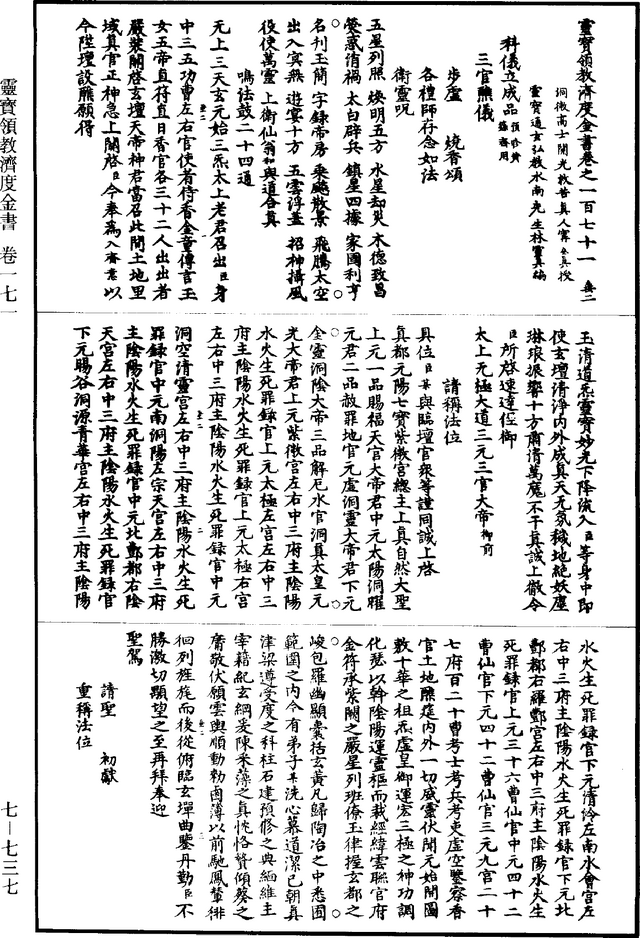 靈寶領教濟度金書卷之一百七十一 無二
洞微高士開光救苦真人甯全真授
靈寶通玄弘教水南先生林靈真編
科儀立成品 預珍黃籙齋用
三官醮儀
步虛 燒香頌
各禮師存念如法
衛靈呪
五星列照 煥明五方 水星却災 木德致昌
熒惑消禍 太白辟兵 鎮星四據 家國利亨
名刊玉簡 字錄帝房 乘飈散景 飛騰太空
出入冥無 遊宴十方 五雲浮蓋 招神攝風
役使萬靈 上衛仙翁和與道合真
鳴法鼓二十四通
无上三天玄元始三炁太上老君召出臣身
中三五功曹左右官使者侍香金童傳言玉
女五帝直符直日香官各三十二人出出者
嚴裝關啓玄壇天帝神君當召此間土地里
域真官正神急上關啓臣今奉為入齋意以
今陞壇設醮願得
玉清道炁靈寶妙光下降流入臣等身中即
使玄壇清淨內外咸真天无氛穢地絕妖塵
琳琅振響十方肅清萬魔不干真誠上徹令
臣所啓速達徑御
太上无極大道三元三官大帝御前
請稱法位
具位臣某與臨壇官衆等謹同誠上啓
真都元陽七寶紫微宮總主上真自然大聖
上元一品賜福天官大帝君中元太陽洞耀
元君二品赦罪地官元虛洞靈大帝君下元
金靈洞陰大帝三品解厄水官洞真太皇元
光大帝君上元紫微宮左右中三府主陰陽
水火生死罪錄官上元太極左宮左右中三
府主陰陽水火生死罪錄官上元太極右宮
左右中三府主陰陽水火生死罪錄官中元
洞空清靈宮左右中三府主陰陽水火生死
罪錄官中元南洞陽左宗天宮左右中三府
主陰陽水火生死罪錄官中元北酆都右陰
天宮左右中三府主陰陽水火生死罪錄官
下元暘谷洞源青華宮左右中三府主陰陽
水火生死罪錄官下元清泠左南水會宮左
右中三府主陰陽水火生死罪錄官下元北
酆都右羅酆宮左右中三府主陰陽水火生
死罪錄官上元三十六曹仙官中元四十二
曹仙官下元四十二曹仙官三元九宮二十
七府百二十曹考士考兵考吏虛空鑒察香
官土地醮筵內外一切威靈伏聞元始開圖
數十華之祖炁虛皇御運宏三極之神功調
化瑟以幹陰陽運靈樞而裁經緯雲聯官府
金符承紫闕之嚴星列班僚玉律握玄都之
峻包羅幽顯囊括玄黃凡歸陶冶之中悉囿
範圍之內今有弟子某洗心慕道潔己朝真
津梁遵受度之科柱石建預修之典緬維主
宰藉紀玄綱爰陳采藻之真恍恪贊傾葵之
膚敬伏願雲輿順動勒鹵簿以前馳鳳輦徘
徊列旌旄而後從俯臨玄墠曲鑒丹勤臣不
勝激切顒望之至再拜奉迎
聖駕
請聖 初獻
重稱法位
靈寶領教濟度金書 卷一七一
七-七三七